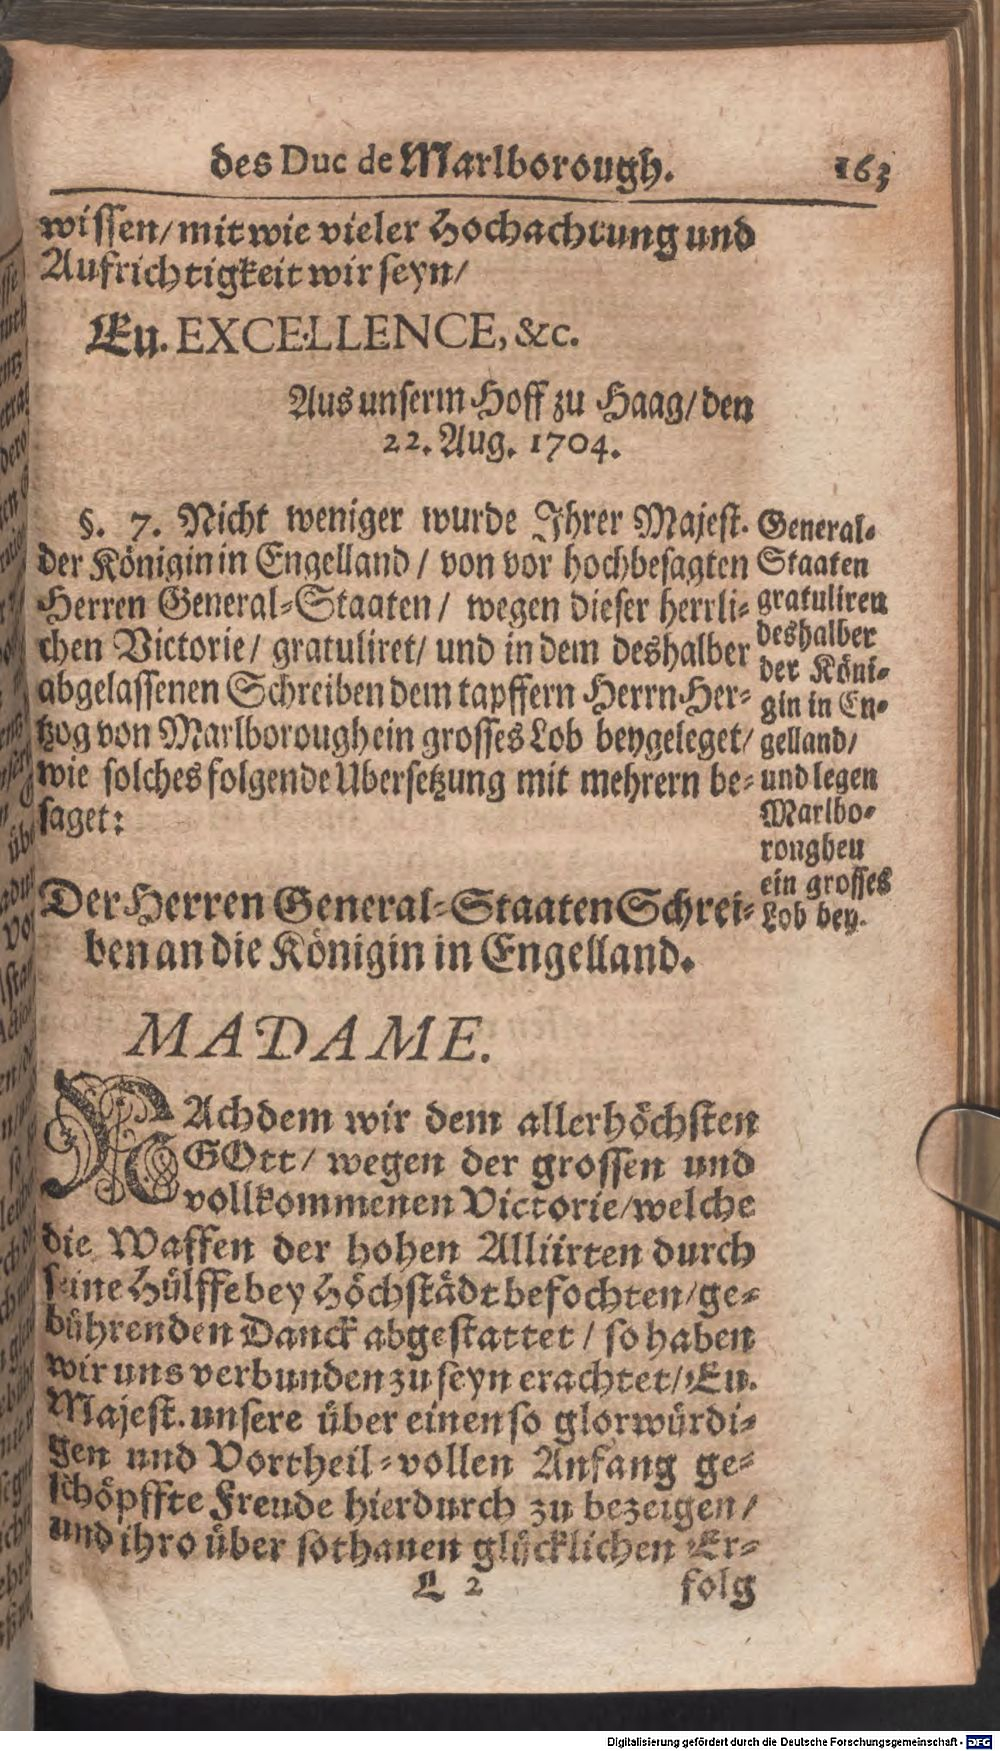 des Duc de Marlborough. 163
wissen/ mit wie vieler Hochachtung und
Aufrichtigkeit wir seyn/
Eu. EXCELLENCE, &c.
Aus unserm Hoff zu Haag/ den
22. Aug. 1704.
§. 7. Nicht weniger wurde Ihrer Majest.
der Königin in Engelland / von vor hochbesagten
Herren General-Staaten / wegen dieser herrli-
chen Victorie/ gratuliret/ und in dem deshalber
abgelassenen Schreiben dem tapffern Herrn Her-
tzog von Marlborough ein grosses Lob beygeleget/
wie solches folgende Ubersetzung mit mehrern be-
saget:
General-
Staaten
gratuliren
deshalber
der Köni-
gin in En-
gelland/
und legen
Marlbo-
roughen
ein grosses
Lob bey.
Der Herren General-Staaten Schrei-
ben an die Königin in Engelland.
MADAME.
NAchdem wir dem allerhöchsten
GOtt/ wegen der grossen und
vollkommenen Victorie/welche
die Waffen der hohen Alliirten durch
seine Hülffe bey Höchstädt befochten/ge-
bührenden Danck abgestattet / so haben
wir uns verbunden zu seyn erachtet/ Eu.
Majest. unsere über einen so glorwürdi-
gen und Vortheil-vollen Anfang ge-
schöpffte Freude hierdurch zu bezeigen/
und ihro über sothanen glücklichen Er-
L 2 folg
Digitalisierung gefördert durch die Deutsche Forschungsgemeinschaft - DFG